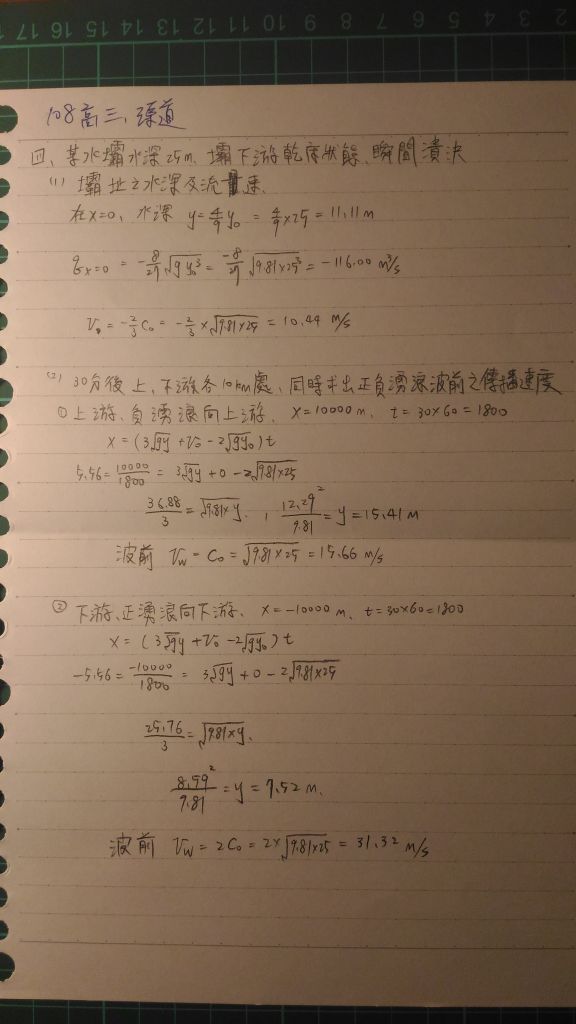 17 16 15 14 13 12 11 10 9 8 7 6 5 4 3 2
108高三、渠道
四、某水壩水深25m、壩下游乾床狀態、瞬間潰決
(1) 壩址之水深及流速、
在x=0, 水深 y=4/9 y₀ = 4/9×25 = 11.11 m
q x=0 = -8/27 √(g y₀³) = -8/27 √(9.81×25³) = -116.00 m³/s
V = -2/3 C₀ = -2/3 × √(9.81×25) = 10.44 m/s
(2) 30分後上、下游各10km處、同時求出正負湧浪波前之傳播速度
① 上游、負湧浪向上游、 x=10000 m, t=30×60=1800
x = (3√gy + V₀ - 2√gy₀) t
5.56 = 10000/1800 = 3√gy + 0 - 2√(9.81×25)
36.88/3 = √(9.81×y), 12.29²/9.81 = y = 15.41 m
波前 Vw = C₀ = √(9.81×25) = 15.66 m/s
② 下游、正湧浪向下游、 x=-10000 m, t=30×60=1800
x = (3√gy + V₀ - 2√gy₀) t
-5.56 = -10000/1800 = 3√gy + 0 - 2√(9.81×25)
25.76/3 = √(9.81×y),
8.59²/9.81 = y = 7.52 m.
波前 Vw = 2C₀ = 2×√(9.81×25) = 31.32 m/s